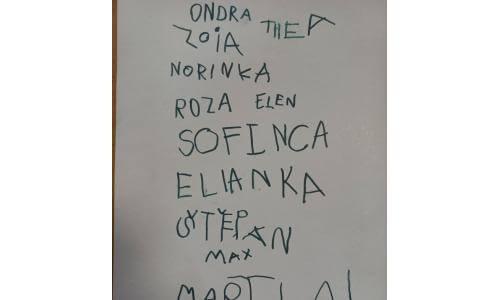 ONDRA THEA
ZOIA
NORINKA
ROZA ELEN
SOFINCA
ELIANKA
ŠTĚPAN
MAX